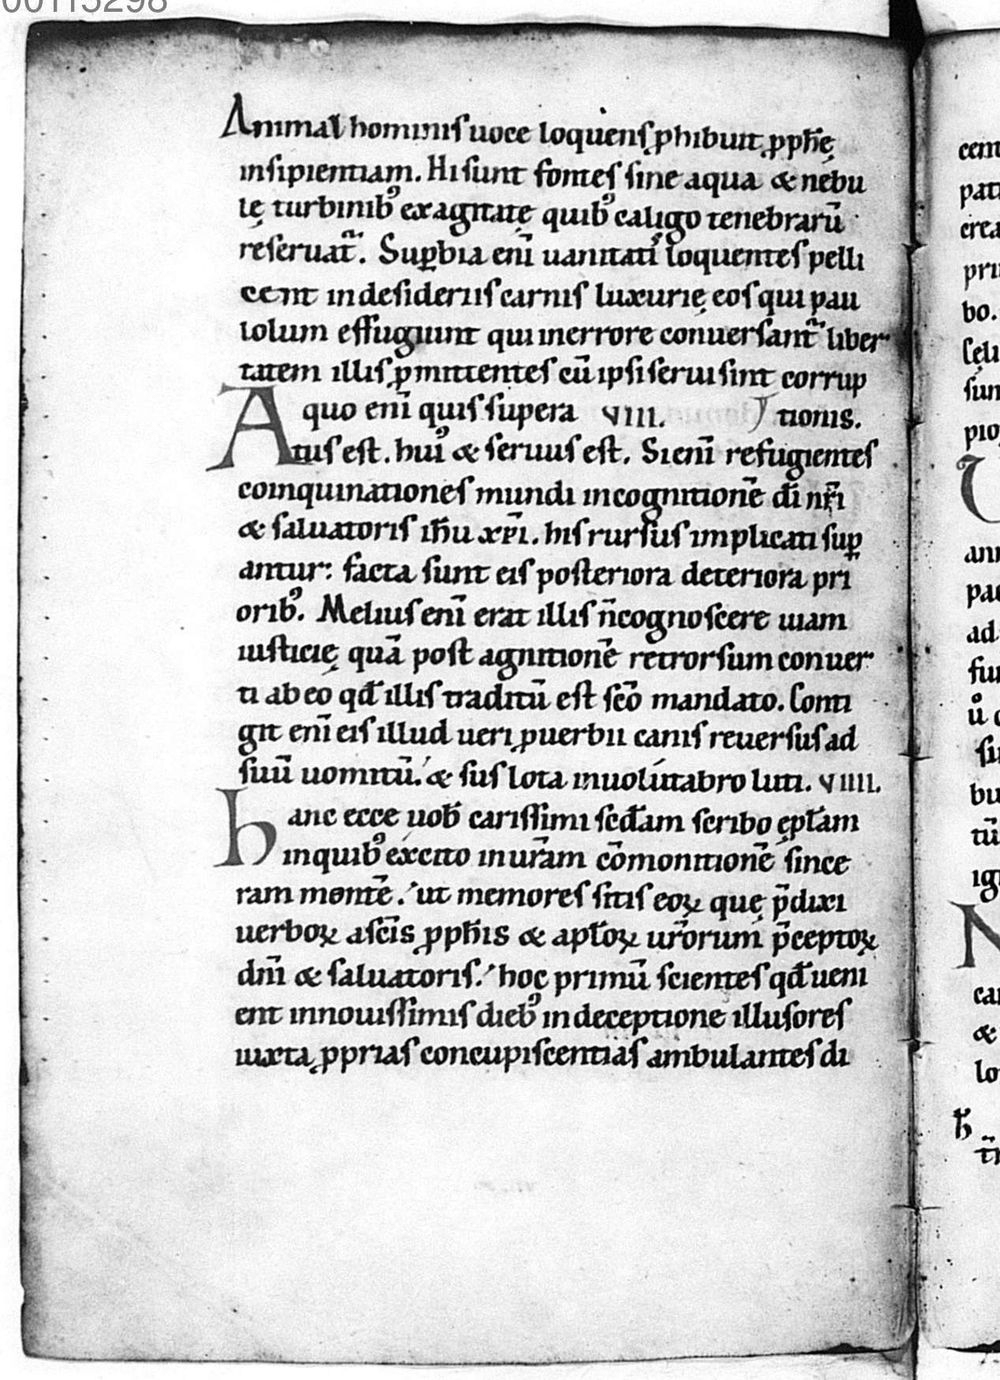 00115298
Animal hominis uoce loquens ꝓhibuit ꝓph̄ę
insipientiam. Hi sunt fontes sine aqua & nebu
lę turbinibꝰ exagitatę quibꝰ caligo tenebrarū
reseruat᷑. Suꝑbia enī uanitatiꝰ loquentes pelli
cent in desideriis carnis luxurię eos qui pau
lolum effugiunt qui in errore conuersant᷑ liber
tatem illis ꝑmittentes cū ipsi serui sint corrup
A quo enī quis supera VIII. tionis.
tus est. huiꝰ & seruus est. Si enī refugientes
coinquinationes mundi in cognitionē dn̄i nr̄i
& saluatoris ih̄u xp̄i. his rursus implicati suꝑ
antur: facta sunt eis posteriora deteriora pri
oribꝰ. Melius enī erat illis n̄ cognoscere uiam
iusticię quā post agnitionē retrorsum conuer
ti ab eo qđ illis traditū est sc̄o mandato. Conti
git enī eis illud ueri ꝓuerbii canis reuersus ad
suū uomitū. & sus lota in uolutabro luti. VIIII.
hanc ecce uob̄ carissimi sed̄am scribo ępl̄am
in quibꝰ excito in ur̄am cōmonitionē since
ram mentē. ut memores sitis eoꝝ quę p̄dixi
uerboꝝ a sc̄is ꝓph̄is & apl̄oꝝ ur̄orum p̄ceptoꝝ
dn̄i & saluatoris. hoc primū scientes qđ ueni
ent in nouissimis diebꝰ in deceptione illusores
iuxta ꝓprias concupiscentias ambulantes di